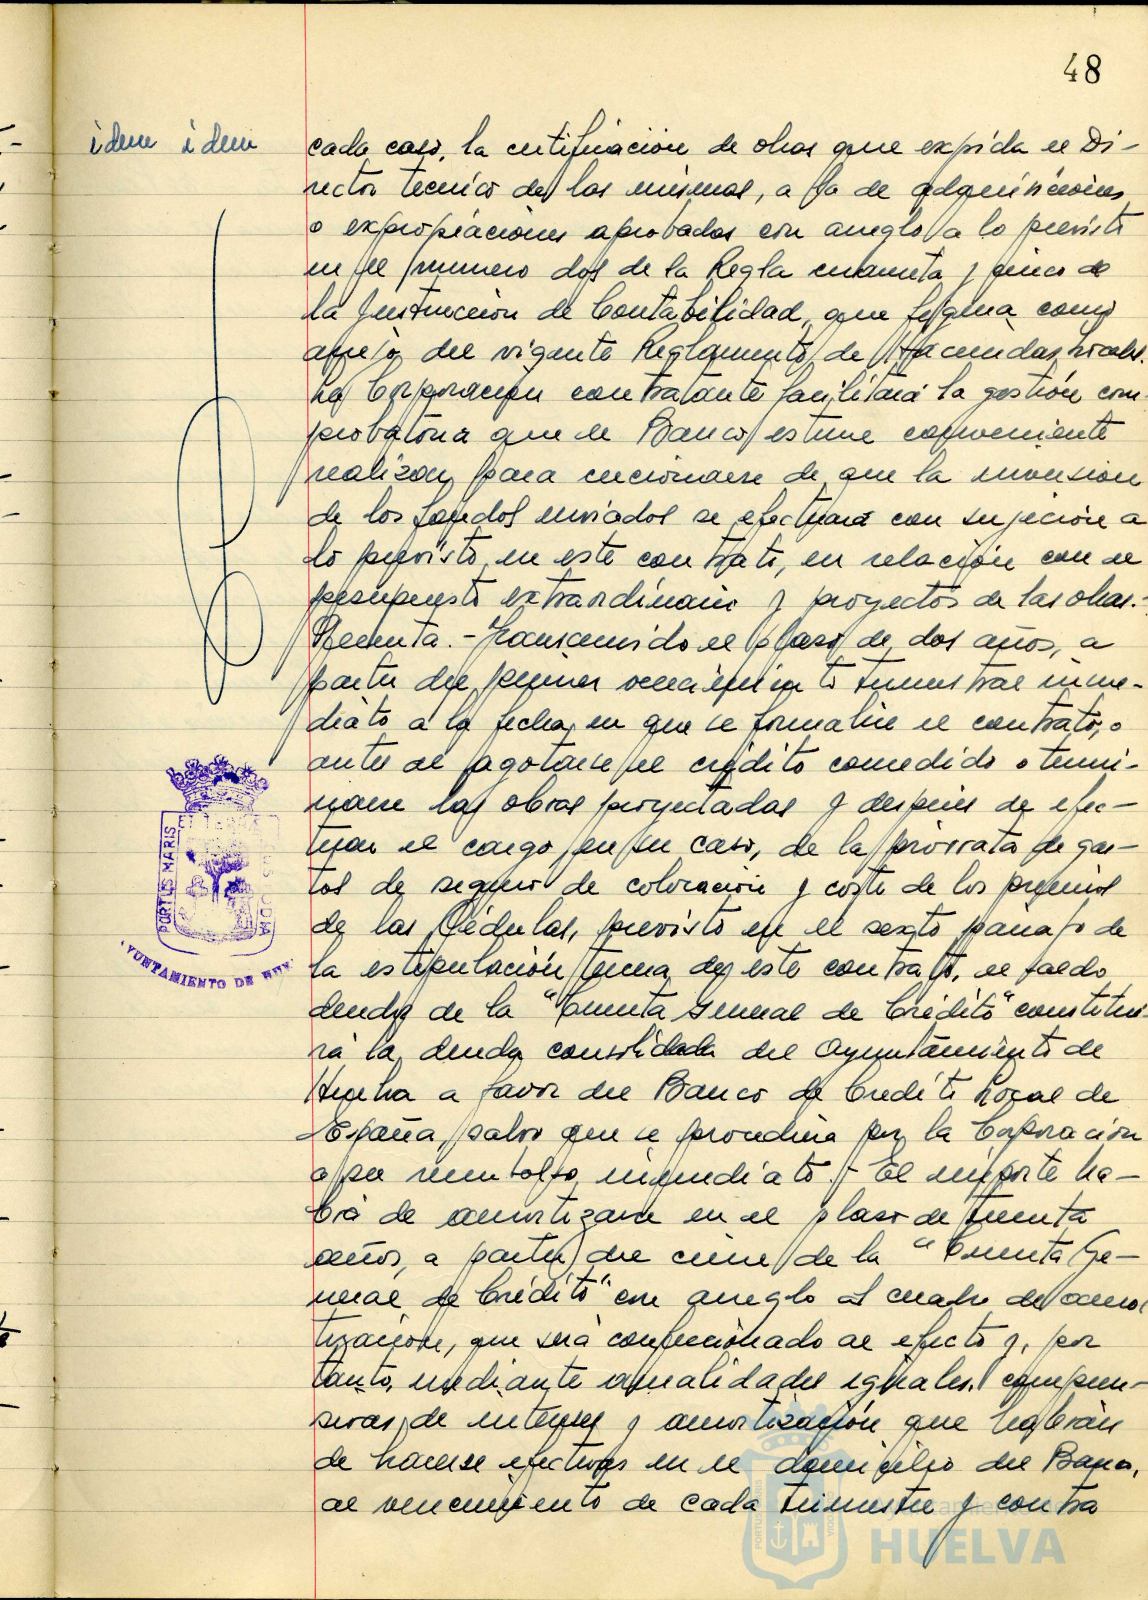 48
idem idem
cada caso, la certificación de obras que expida el Di-
rector técnico de las mismas, a la de adquisiciones
o expropiaciones aprobadas con arreglo a lo previsto
en el número dos de la Regla cuarenta y cinco de
la Instrucción de Contabilidad, que figura como
anejo del vigente Reglamento de Haciendas locales.
La Corporación contratante facilitará la gestión com-
probatoria que el Banco estime conveniente
realizar, para cercionarse de que la inversión
de los fondos enviados se efectuará con sujeción a
lo previsto en este contrato, en relación con el
presupuesto extraordinario y proyectos de las obras.-
Recenta.- Transcurrido el plazo de dos años, a
partir del primer vencimiento trimestral inme-
diato a la fecha en que se formalice el contrato, o
antes de agotarse el crédito concedido o termi-
narse las obras proyectadas y después de efec-
tuar el cargo, en su caso, de la prorrata de gas-
tos de seguro de colocación y coste de los premios
de las Cédulas, previsto en el sexto párrafo de
la estipulación tercera de este contrato, el saldo
deudor de la "Cuenta General de Crédito" constitui-
rá la deuda consolidada del Ayuntamiento de
Huelva a favor del Banco de Crédito Local de
España, salvo que se procediera por la Corporación
a su reembolso inmediato.- El importe ha-
brá de amortizarse en el plazo de treinta
años, a partir del cierre de la "Cuenta Ge-
neral de Crédito" con arreglo al cuadro de amor-
tización, que será confeccionado al efecto y, por
tanto, mediante anualidades iguales, compren-
sivas de interés y amortización que habrán
de hacerse efectivas en el domicilio del Banco,
al vencimiento de cada trimestre y contra
PORTUS MARIS
AYUNTAMIENTO DE HUELVA
Ayuntamiento de
HUELVA